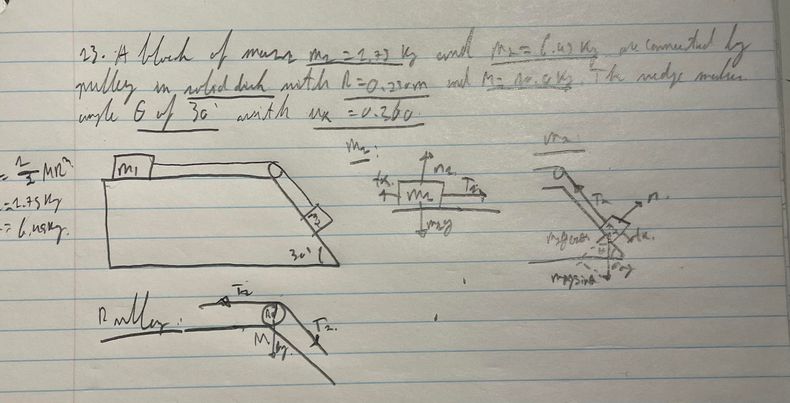 23. A block of mass m₁ = 1.75 kg and m₂ = 6.45 kg are connected by
pulley in solid disk with R = 0.250m and M = 10.0 kg. The wedge makes
angle θ of 30° with uk = 0.360.
m₂:
= 1/2 MR²
= 1.75 kg
= 6.45 kg.
m₁
m₂
30°
n₂
T₂
m₂
m₂g
T₂
n.
m₂
m₂g sinθ
T₂
Pulley:
T₂.
M